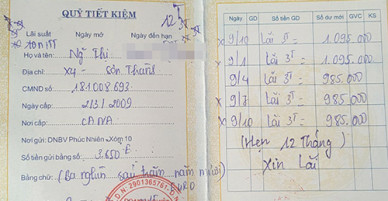 QUỸ TIẾT KIỆM
12
Lãi suất Ngày mở Ngày đến hạn
Họ và tên: Ngô Thị
Địa chỉ: X4 - Sơn Thành
CMND số: 181008693
Ngày cấp: 2131 2009
Nơi cấp: CA N/A
Nơi gửi: DNBV Phúc Nhiên - Xóm 10
Số tiền gửi bằng số: 3.650
Bằng chữ: (Ba nghìn sáu trăm năm mươi)
2901365761
Ngày GD Số tiền GD Số dư mới GVC KS
x 9/10 Lãi 3T 1.095.000
x 9/1 Lãi 3T 1.095.000
9/4 Lãi 3T 985.000
x 9/7 Lãi 3T 985.000
x 9/10 Lãi 3T 985.000
(Hẹn 12 Tháng)
Xin Lãi